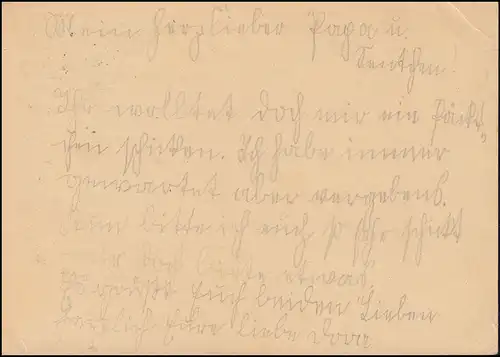 Mein herzlieber Papa u.
Tentchen!
Ihr wolltet doch mir ein Päckt-
chen schicken. Ich habe immer
gewartet aber vergebens.
bitte ich euch schickt
etwas
Es grüßt Euch beiden Lieben
herzlich Eure liebe Dora